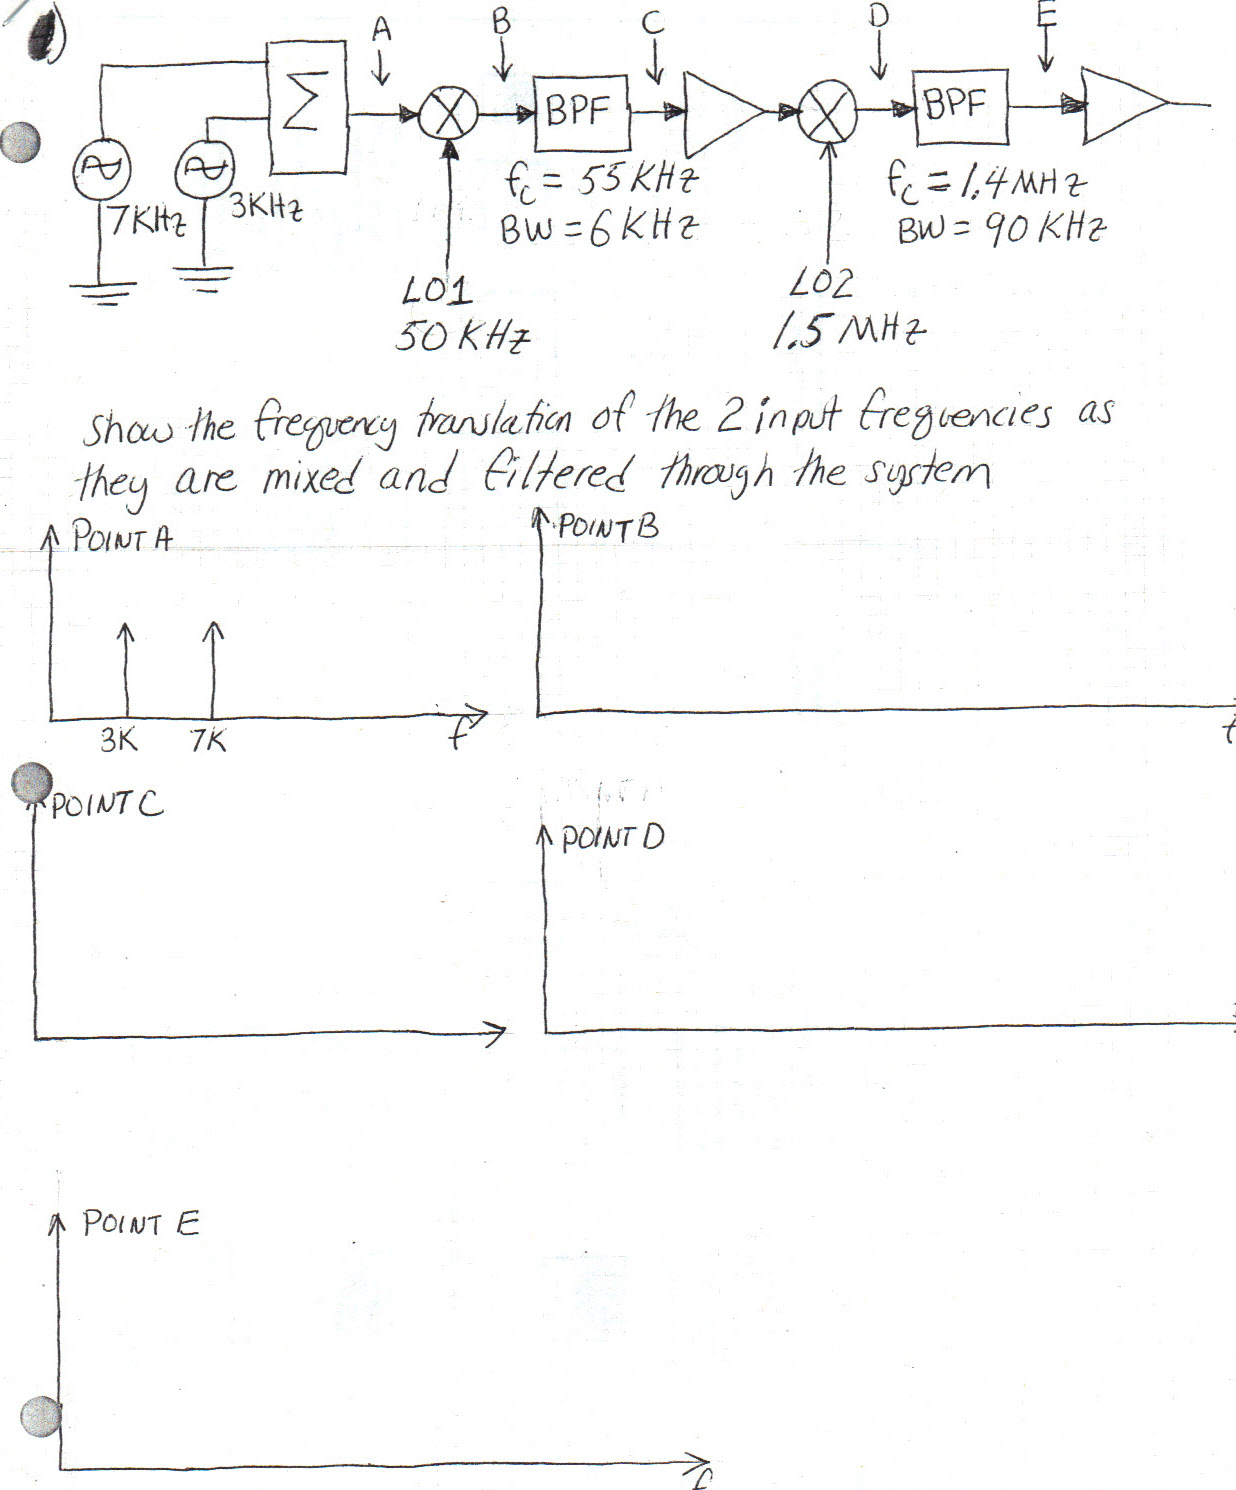 A B C D E
Σ
X BPF X BPF
7KHz 3KHz
fc = 55 KHz
BW = 6 KHz
fc = 1.4 MHz
BW = 90 KHz
LO1
50 KHz
LO2
1.5 MHz
Show the frequency translation of the 2 input frequencies as
they are mixed and filtered through the system
POINT A
3K 7K f
POINT B
f
POINT C
POINT D
POINT E
f